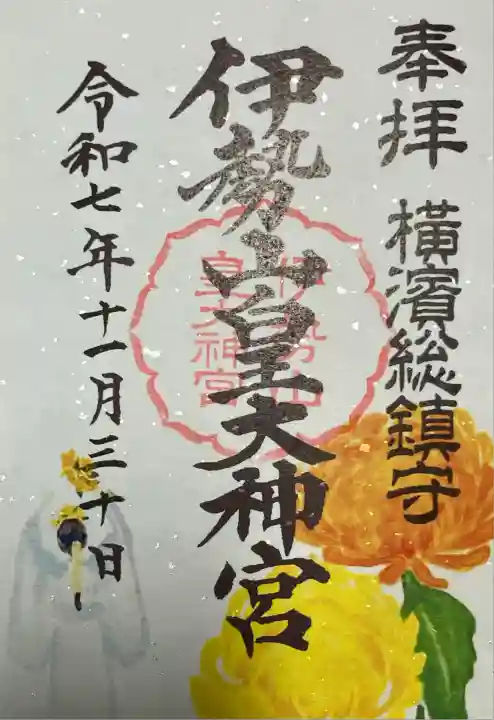 奉拝 横濱総鎮守
伊勢山皇大神宮
伊勢山
皇大神宮
令和七年十一月三十日